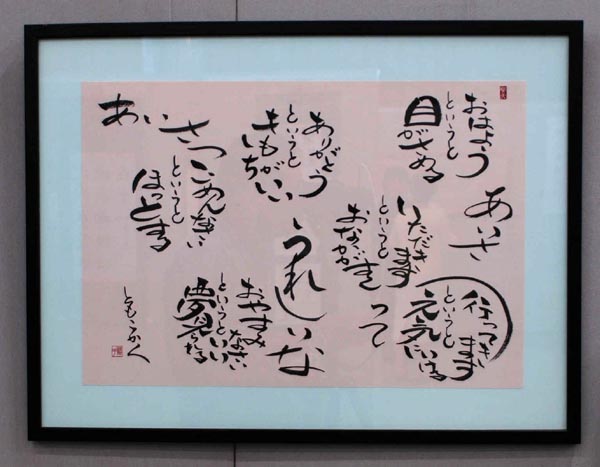 おはよう
というと
目がさめる
あいさ
行ってきます
というと
元気にいける
って
いただきます
というと
おなかがすく
うれしいな
ありがとう
というと
きもちがいい
おやすみなさい
というといい
夢見れる
あいさつ
ごめんなさい
というと
ほっとする